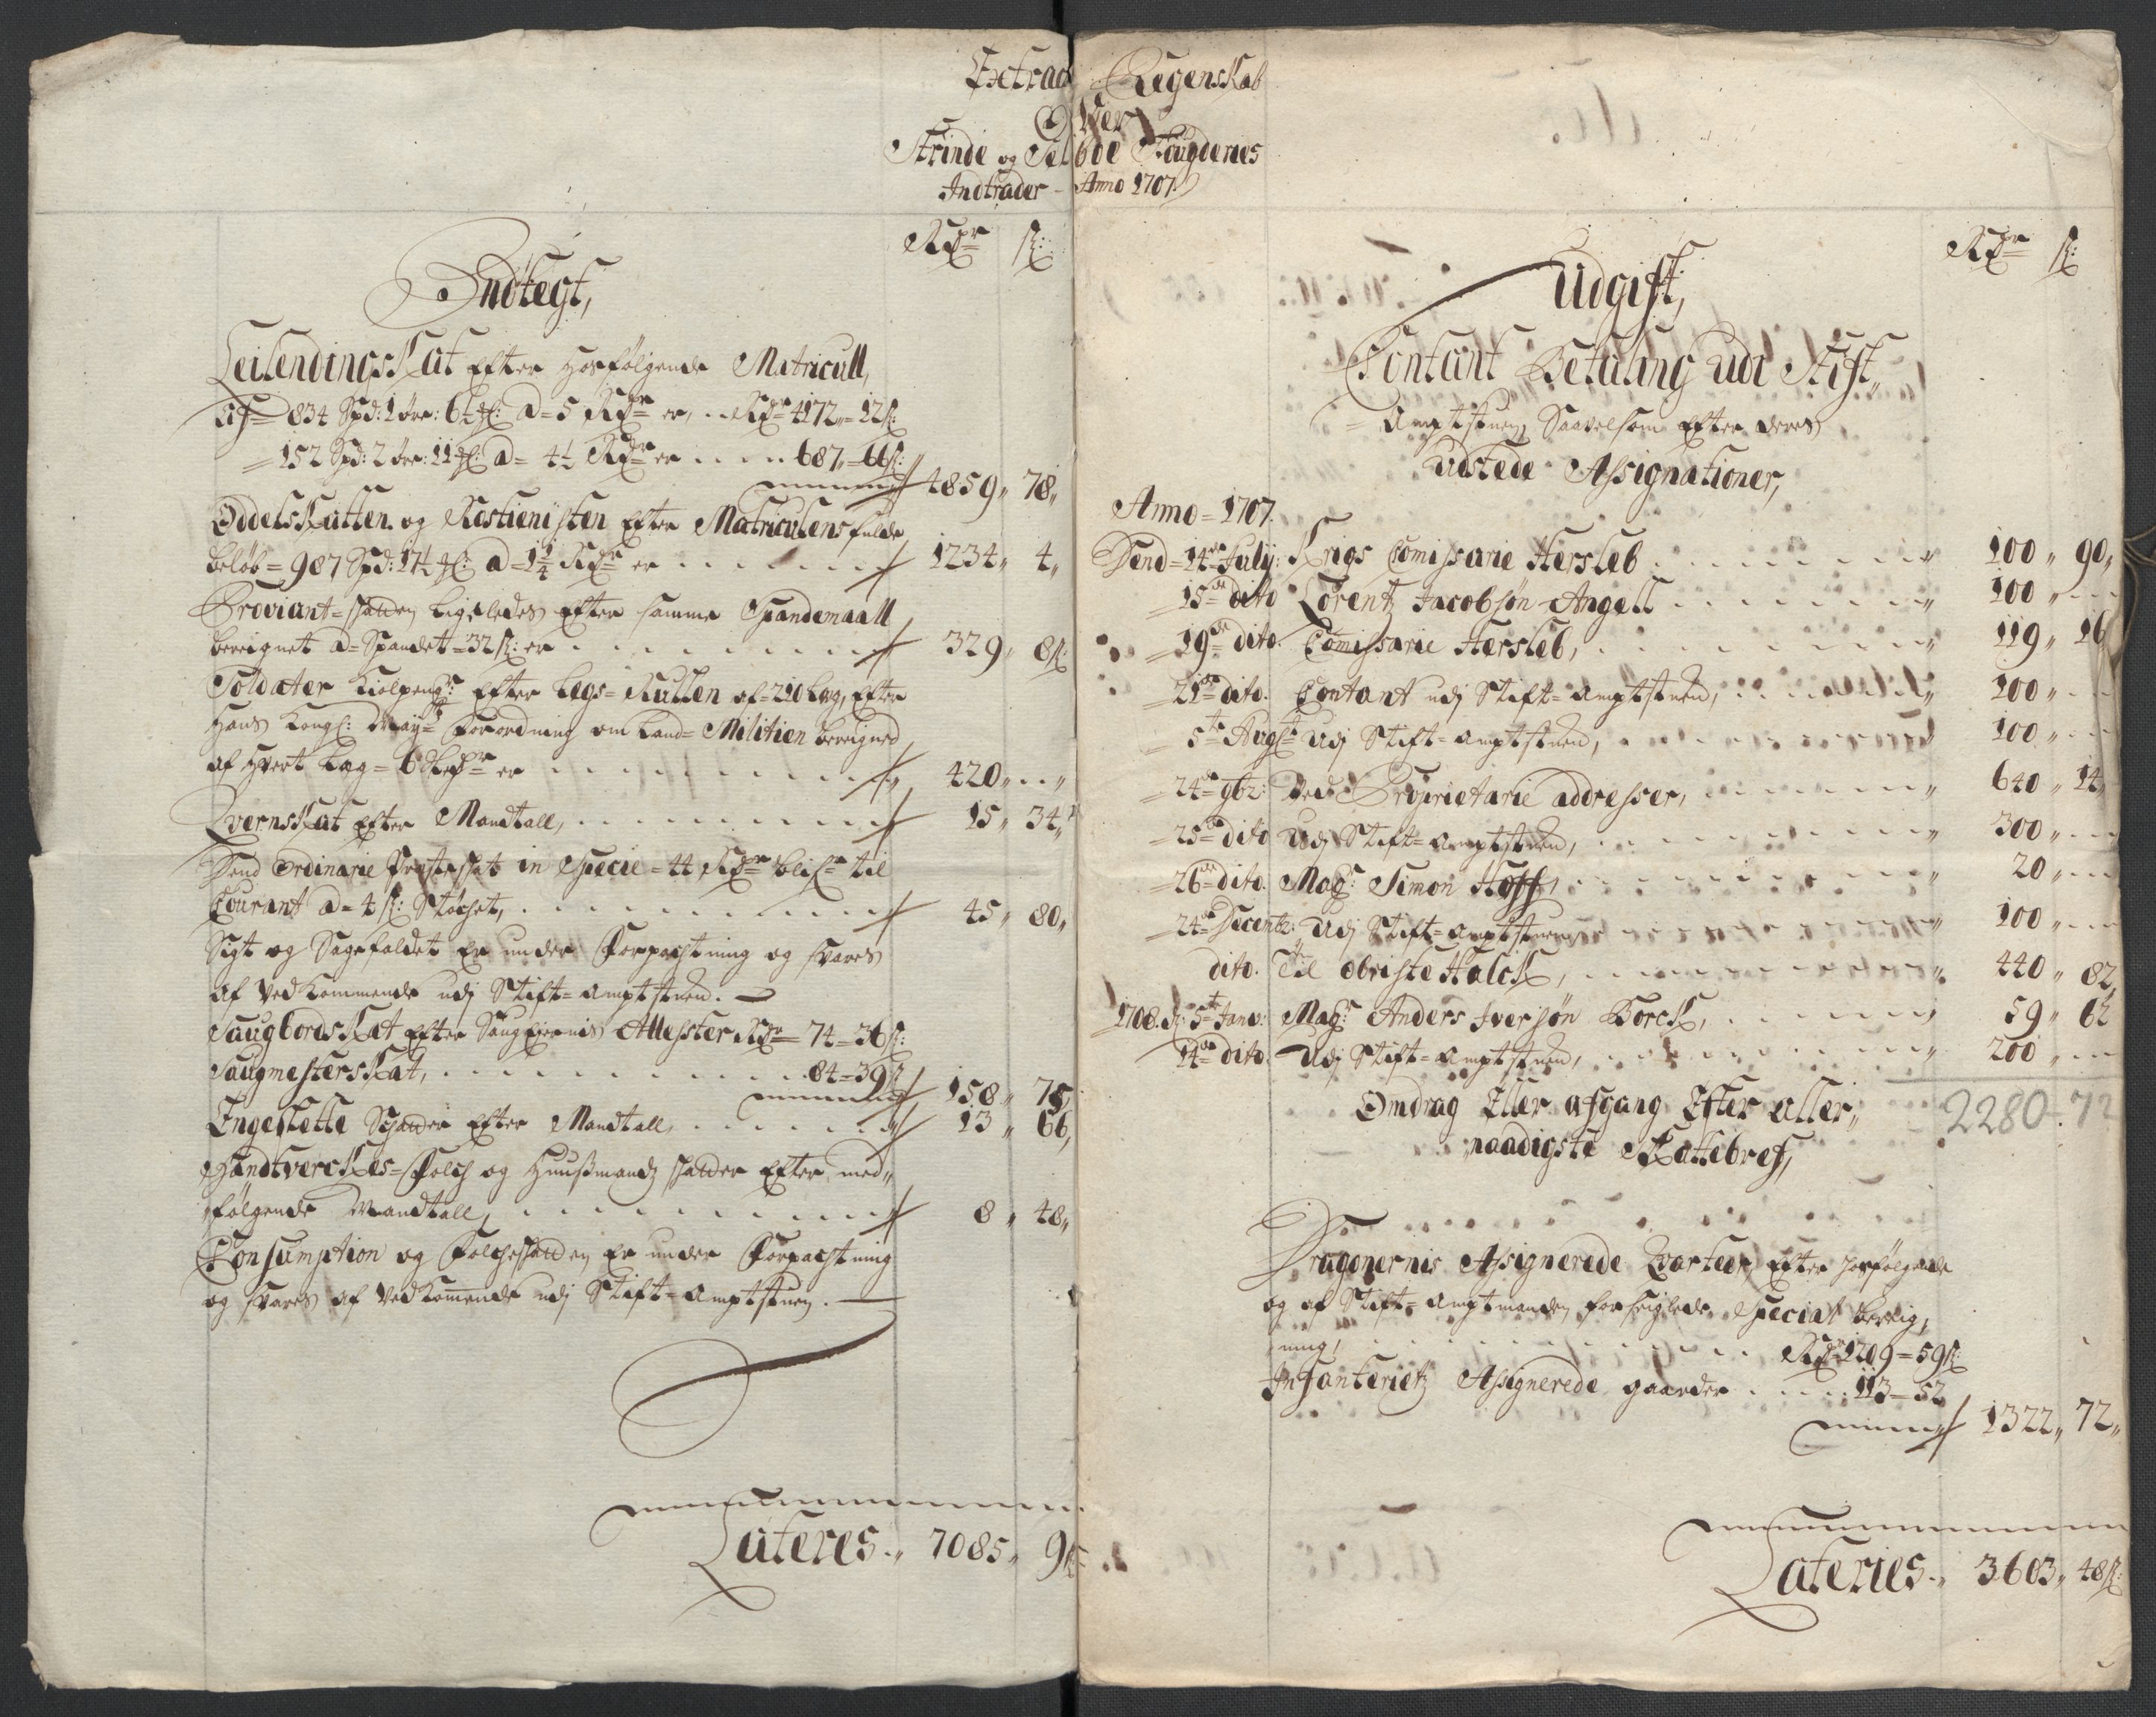 Extract Regenskab
Over
Strinde og Selboe Fougderies
Indtrader - Anno 1707
Rdr sk:
Indtegt,
LeilendingsKat Efter hosfølgende Matricull,
Af 834 Spd: 1 øre: 6½ a= 5 Rdr er, .. Rdr 4172 = 12 sk:
= 152 Spd: 2 øre: 11 a= 4½ Rdr er .... 687 = 66 sk: 4859 „ 78 „
OddelsKatten og Rostienisten Efter Matriculens fulde
beløb = 987 Spd: 17½ a= 1¼ Rdr er 1234 „ 4 „
Proviant=skatten ligeledes Efter samme Spandemaall
beregnet a= Spandet = 32 sk: er 329 „ 8 sk:
Soldater Kiolpenge Efter Legs=Rullen af = 210 Læg, Efter
Hans Kongl: May:ts Forordning om Land=Militien beregned
af hvert Læg = 6 er 420 „ .. „
QvernsKat Efter Mandtall, 15 „ 34 „
Dend Ordinarie Præsteskat in Specie = 44 Rdr til
Courant a= 4 sk: Støchet, 45 „ 80 „
Sigt og Sagefaldet Er under Forpachtning og svares
af Vedkommende udj Stift=Amptstuen.
SaugbordsKat Efter Saugeiernis Attester Rdr 74 = 36 sk:
SaugmestersKat, 84 = 39 sk 158 „ 75 „
Engeslette Schatter Efter Mandtall 13 „ 66 „
Handtverckes=Folch og Huusmandz skatter Efter med„
„følgende Mandtall, 8 „ 48 „
Consumption og Folcheskatten Er under Forpachtning
og svares af Vedkommende udj Stift=Amptstuen.
Lateres .. 7085 „ 9 sk
Rdr sk:
Udgift,
Contant Betaling udi Stift„
= Amptstuen, Saavelsom Efter deres
udstede Assignationer,
Anno = 1707.
Dend = 14de July: Krigs Comissarie Hersleb 100 „ 90 „
= 15de dito Lorentz Jacobsøn Angell 100 „ ..
= 19de dito. Comissarie Hersleb, 119 „ 16
= 21de dito. Contant udj Stift=Amptstuen, 100 „ ..
= 5te Augt: Udj Stift=Amptstuen, 100 „ ..
= 24de 9br: Ved Proprietarie addresser, 640 „ 14
= 25de dito Udj Stift=Amptstuen, 300 „ ..
= 26de dito. Magr: Simon Hoff, 20 „ ..
= 24de Decemb: Udj Stift=Amptstuen 100 „ ..
dito. Til Obriste Halck, 440 „ 82
1708. d: 5te Janv: Magr: Anders Iversøn Borck, 59 „ 62
14de dito. Udj Stift=Amptstuen, 200 „ ..
2280. 72
Omdrag Eller afgang Efter aller„
naadigste Skattebref,
Dragonernis Assignerede Qvarteer Efter hosfølgende
og af Stift=Amptmanden forseiglede Special bereig„
„ning, Rdr 1209 = 59 sk:
Infanterietz Assignerede gaarder ..... 113 = 52
1322 „ 72 „
Lateries .. 3603 „ 48 sk: